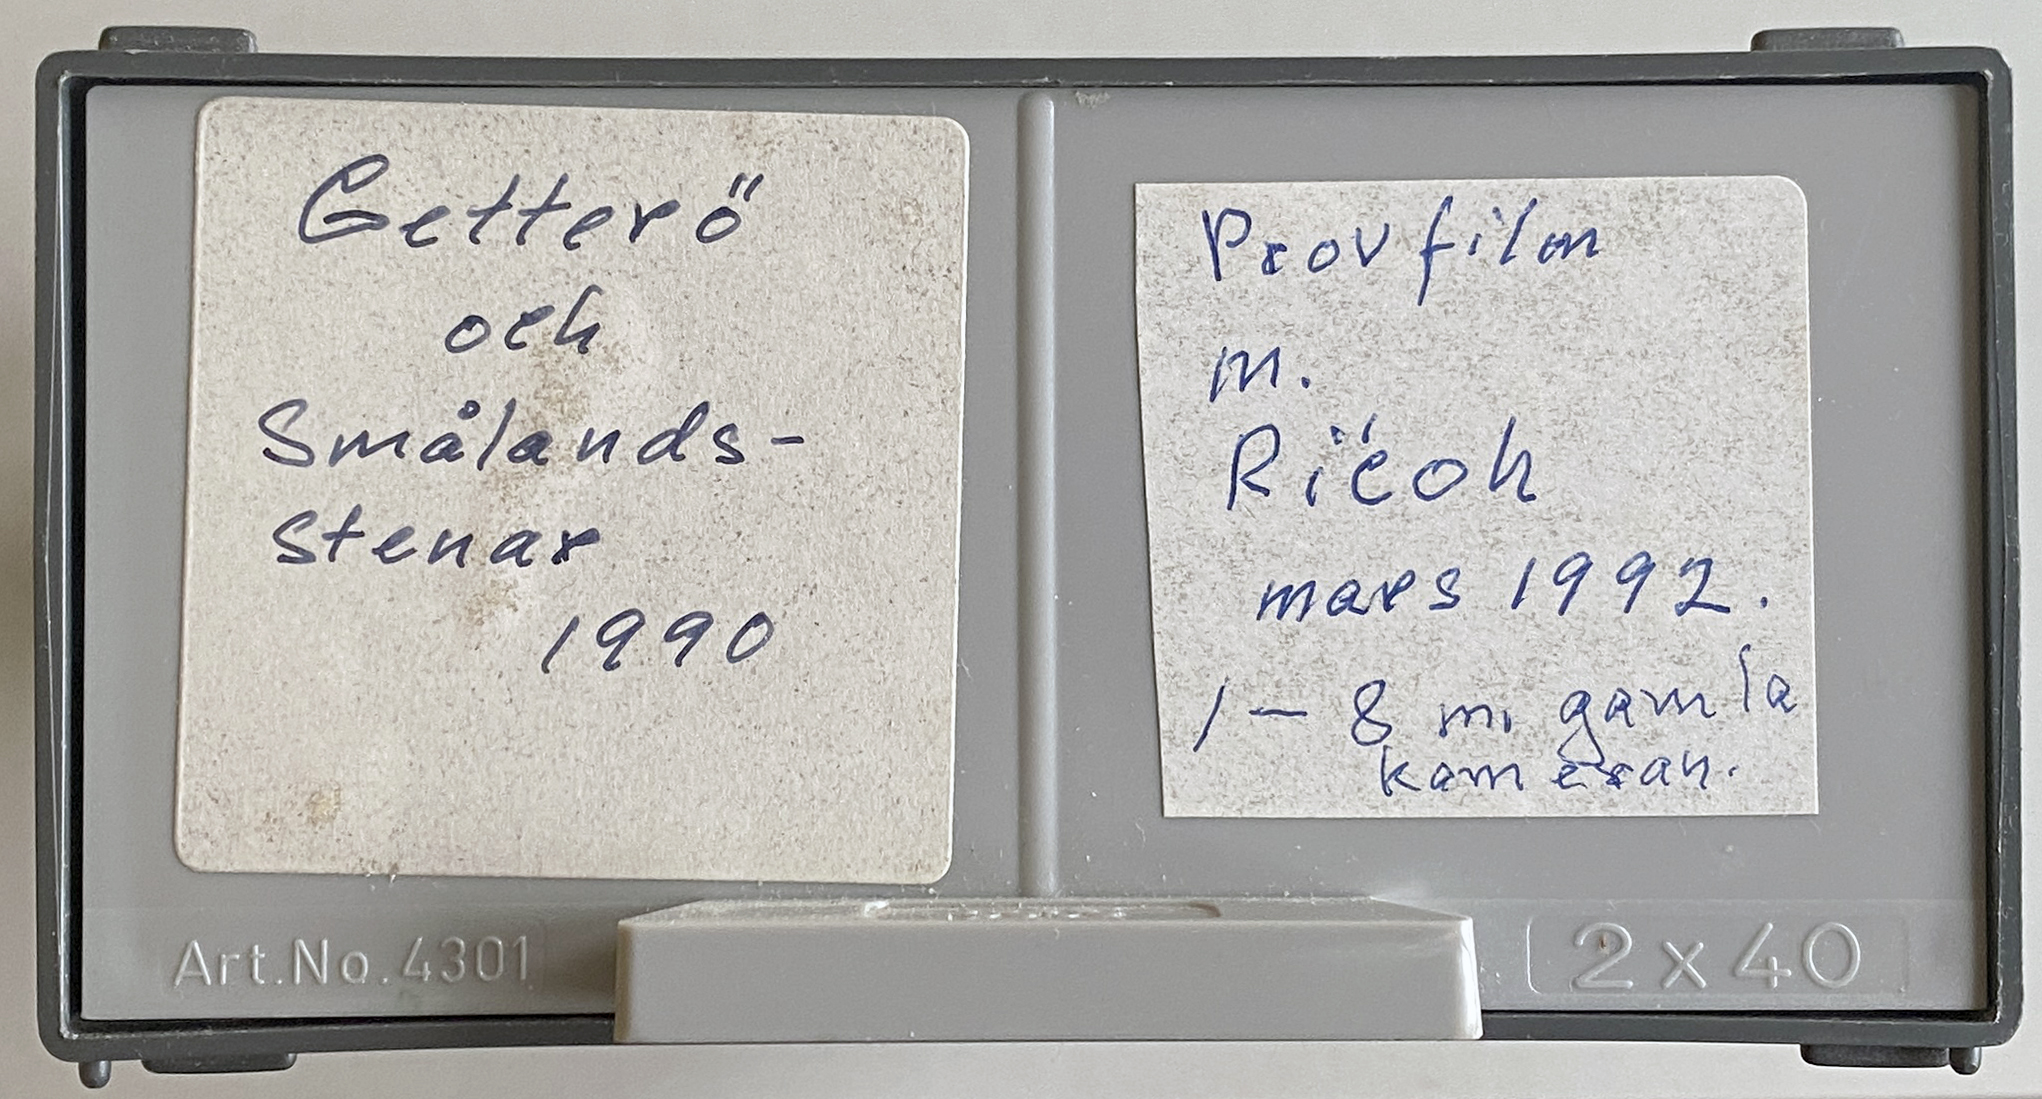 Getterö
och
Smålands-
stenar
1990
Provfilm
m.
Ricoh
mars 1992.
1 - 8 m. gamla
kameran.
Art.No.4301
2x40